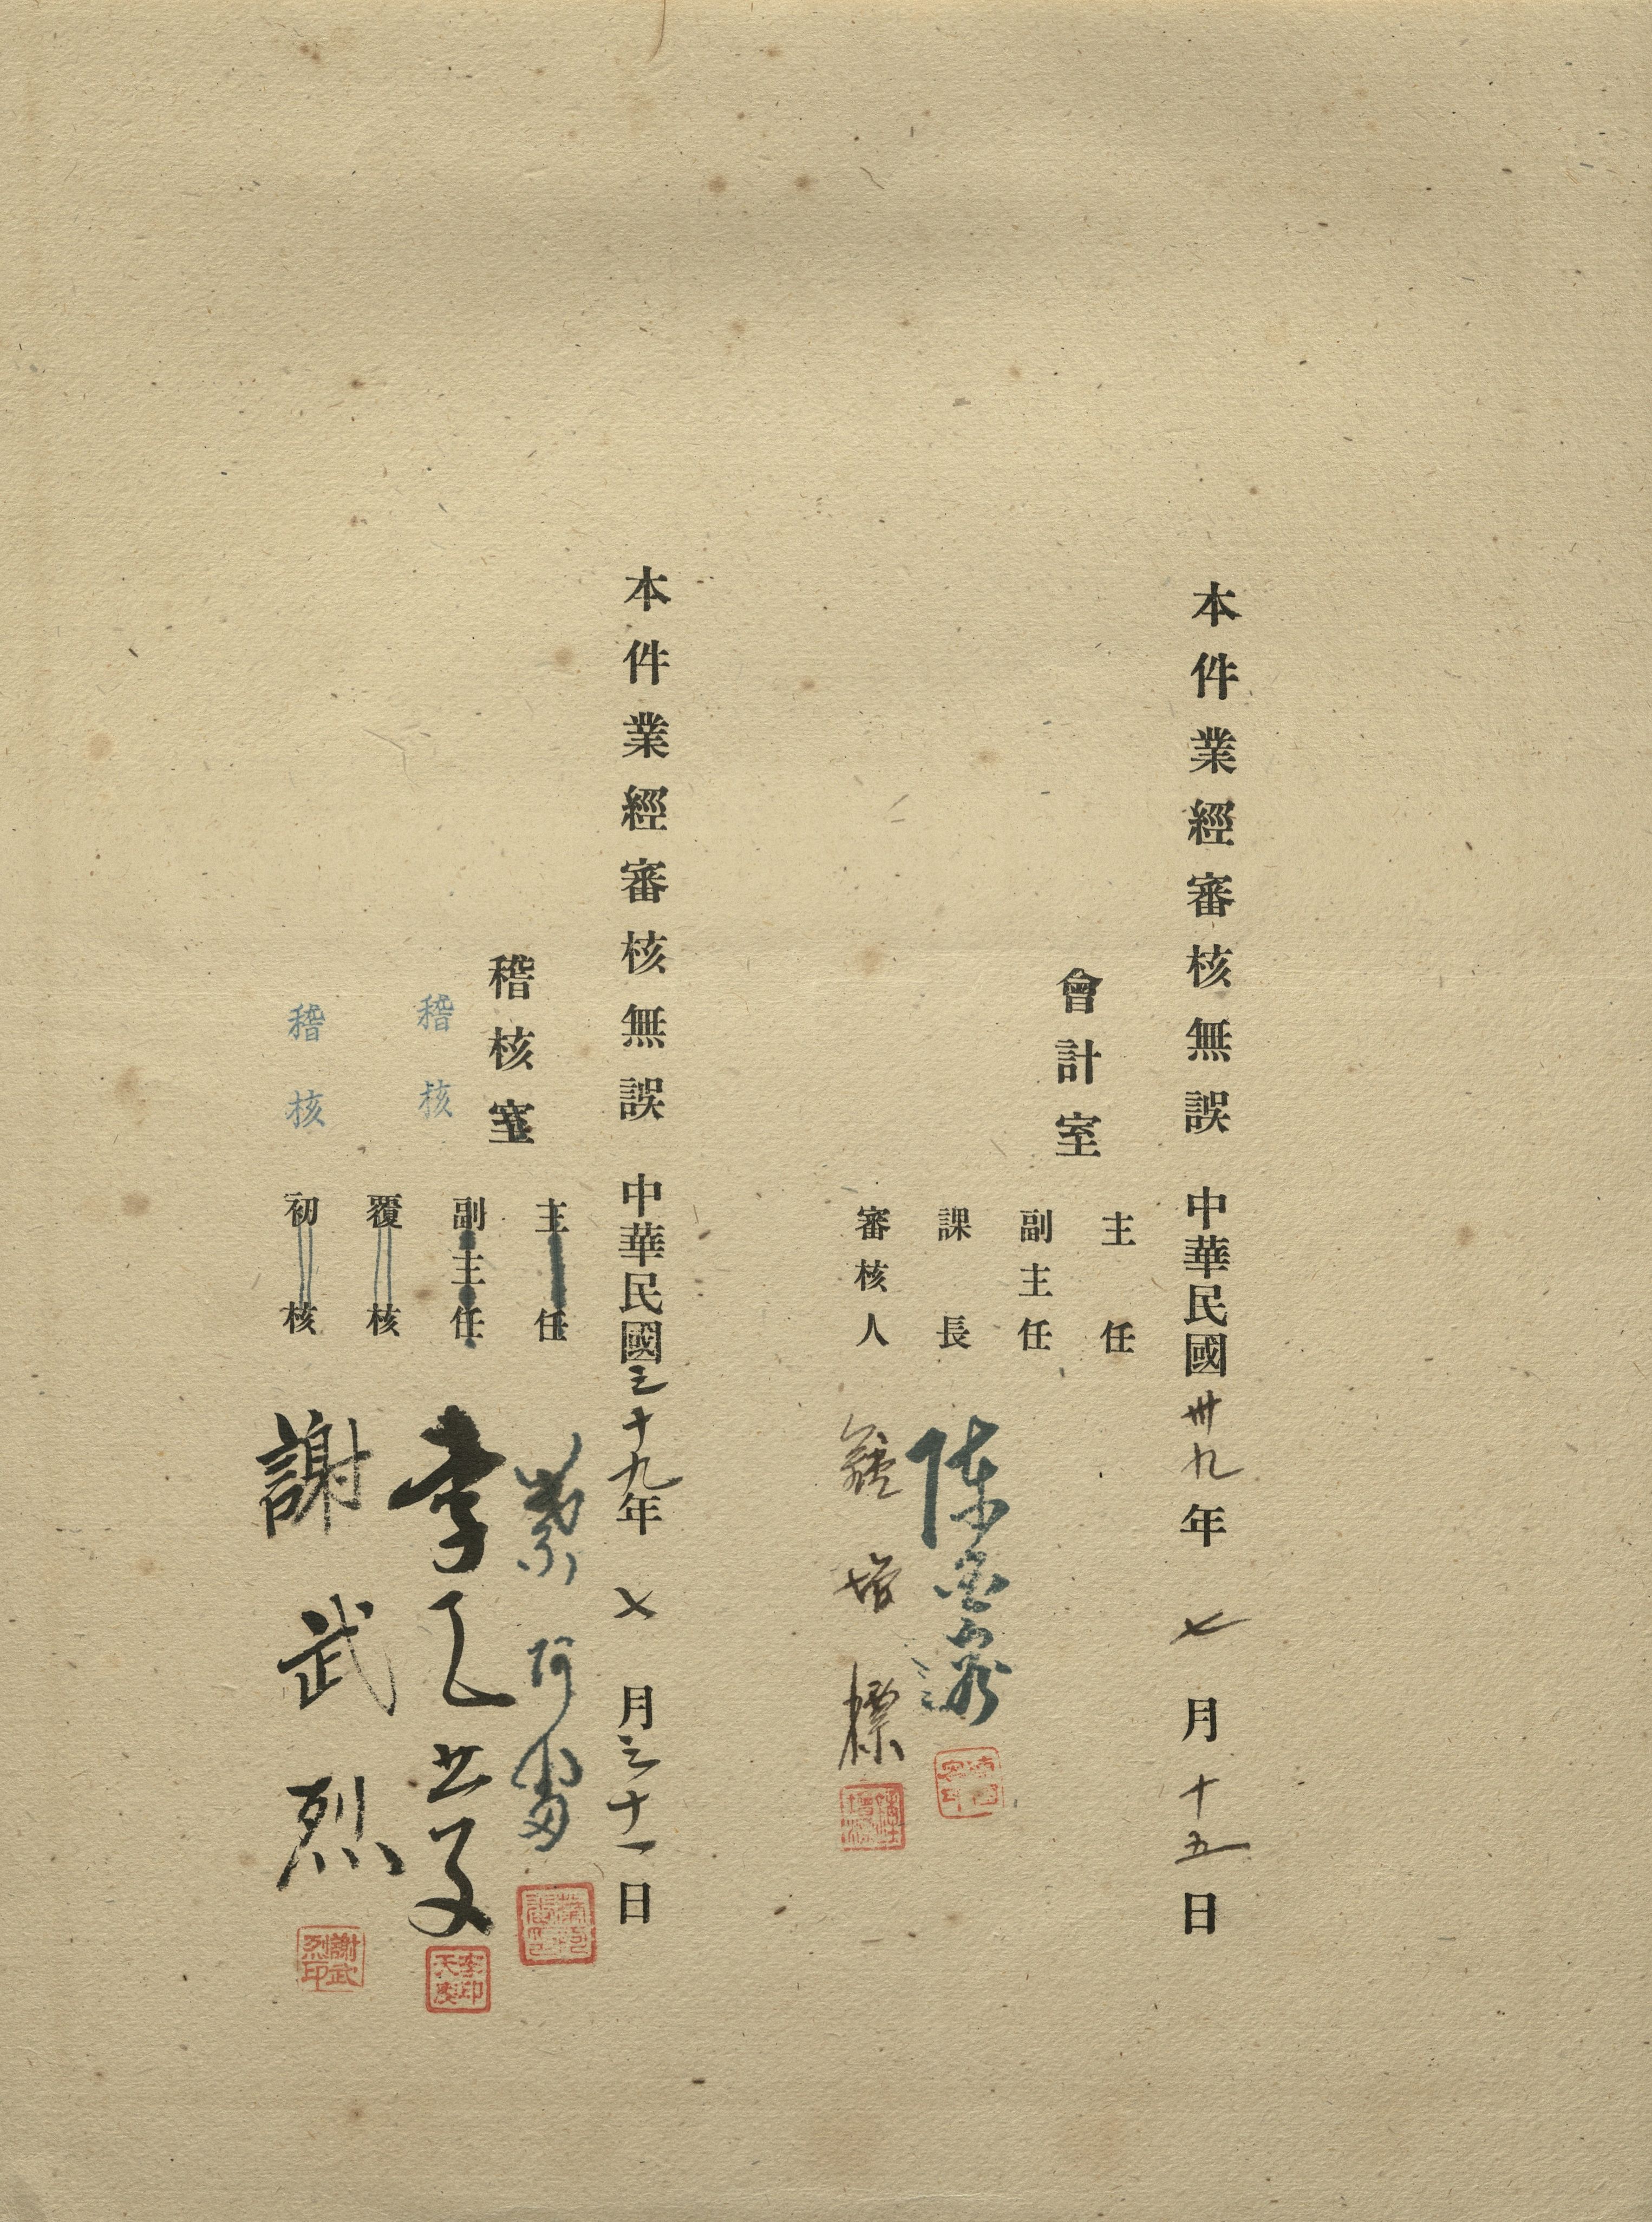 本件業經審核無誤 中華民國卅九年七月十五日
會計室
主任
副主任
課長 陳
審核人 鍾增標
本件業經審核無誤 中華民國三十九年七月三十一日
稽核室
主任 蔡阿
副主任
稽核
覆核 李天
稽核
初核 謝武烈
謝武烈印